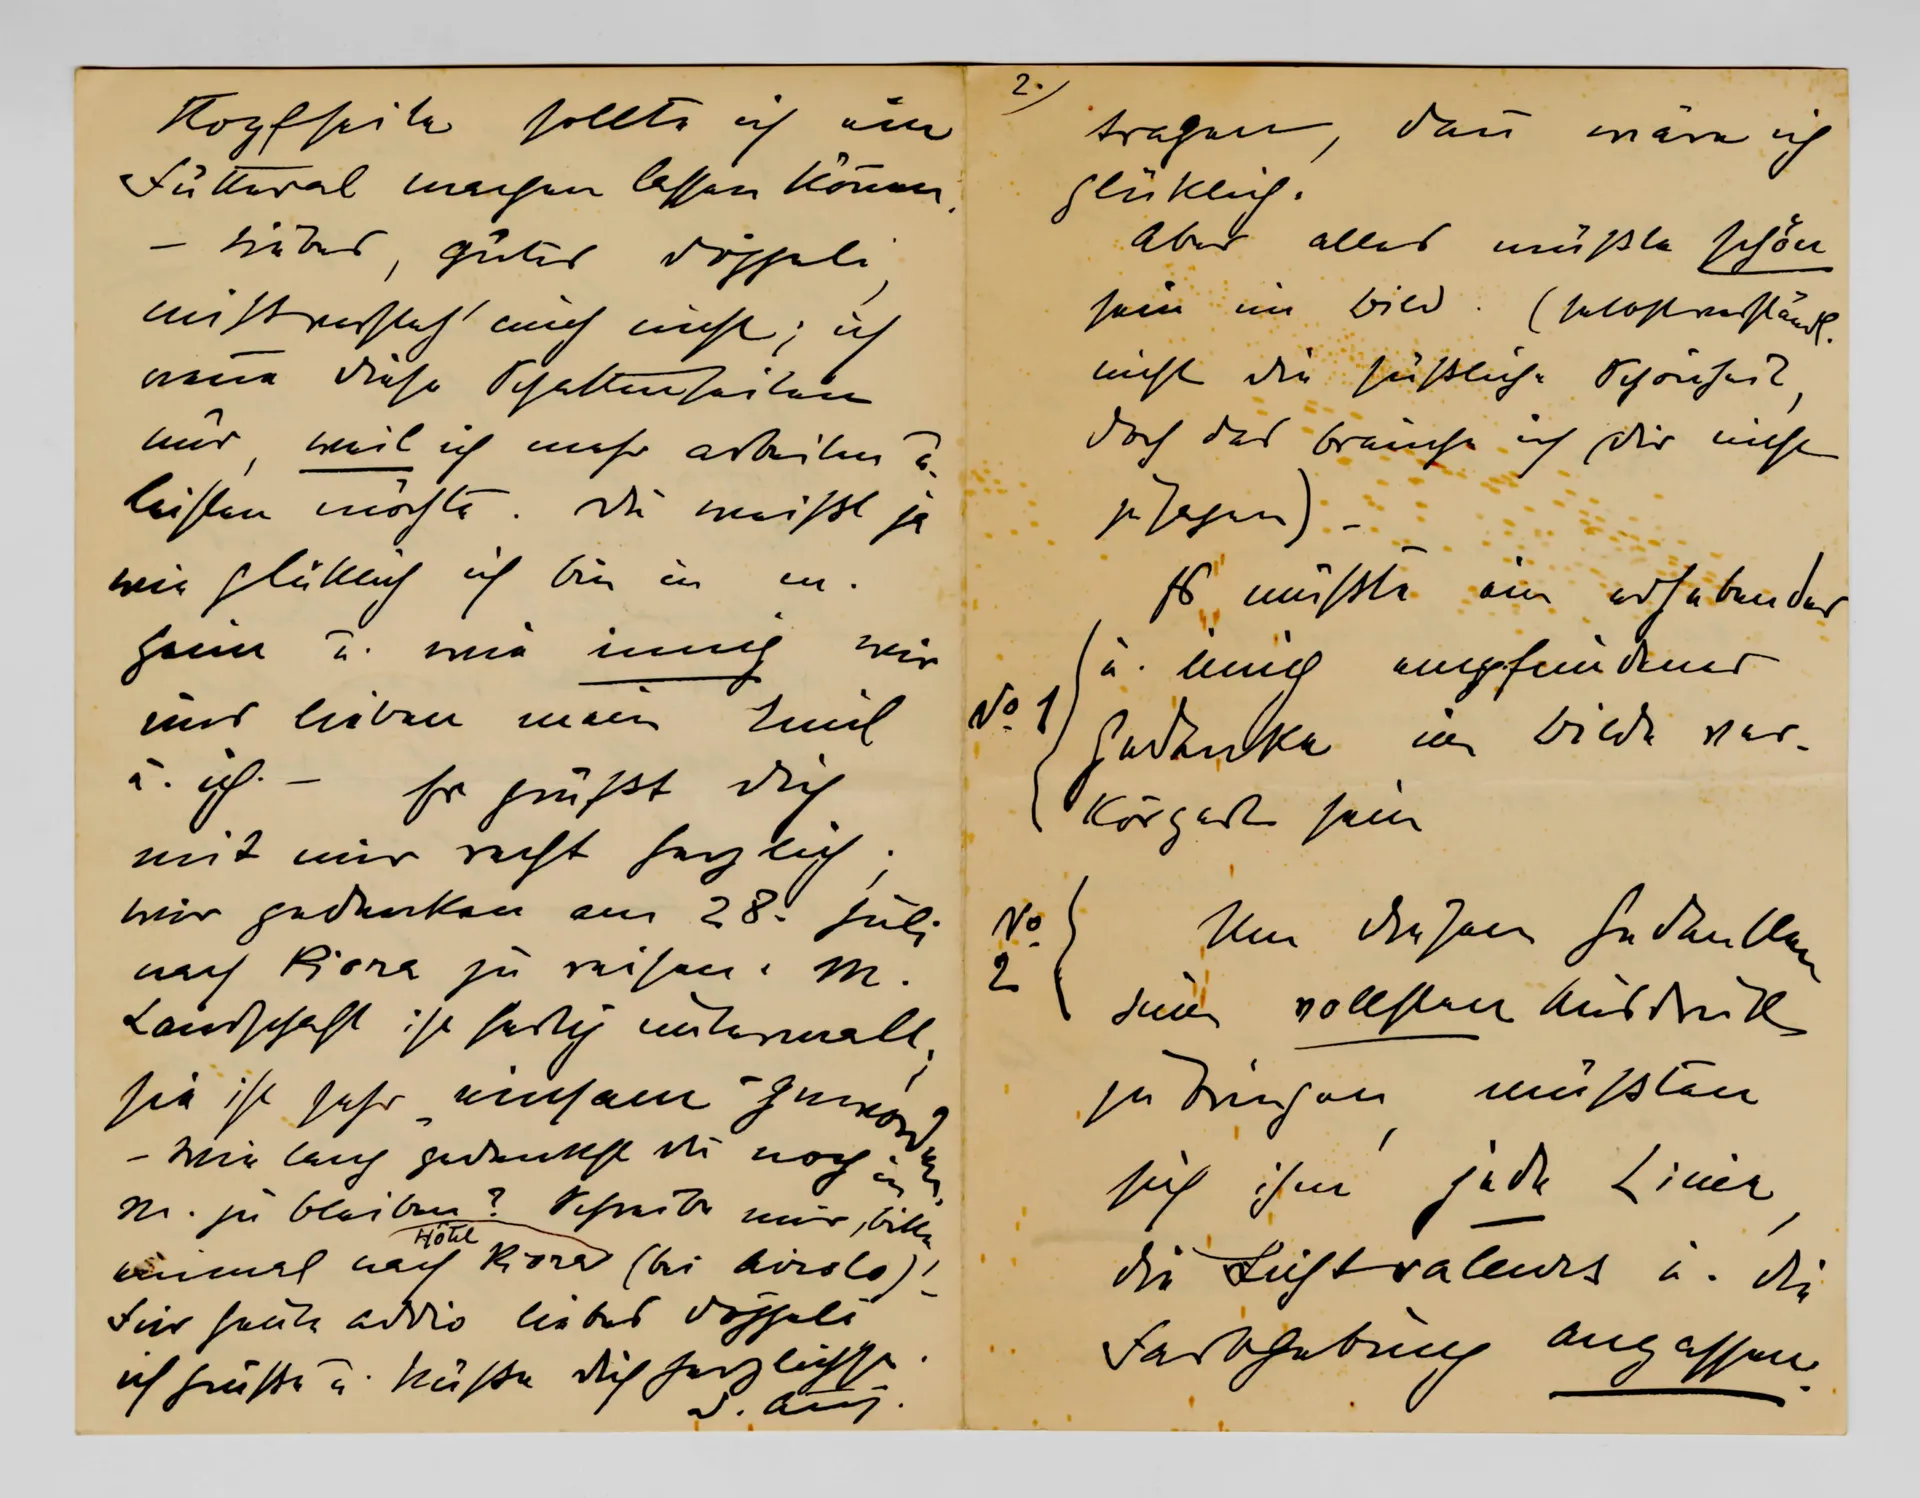 Kopfseite sollte ich ein
Futteral machen lassen können.
– Liebes, gutes Döppeli,
missversteh' mich nicht; ich
nenne diese Schattenseiten
nur, weil ich mehr arbeiten u.
leisten möchte. Du weißt ja
wie glüklich ich bin in m.
Heim u. wie innig wir
uns lieben mein Emil
u. ich. – Er grüßt dich
mit mir recht herzlich;
wir gedenken am 28. Juli
nach Piora zu reisen. M.
Landschaft ist fertig untermalt;
sie ist sehr „einsam" geworden.
– Wie lang gedenkst du noch in
M. zu bleiben? Schreibe mir, bitte
einmal nach Hôtel Piora (bei Airolo)!
Für heute addio liebes Döppeli
ich grüße u. küße dich herzlichst.
D. Anny.
2.)
tragen, dann wäre ich
glüklich.
Aber alles müßte schön
sein im Bild. (selbstverständl.
nicht die süßliche Schönheit,
doch das brauche ich dir nicht
zu sagen) –
Es müßte ein erhabender
u. innig empfundener
No. 1
Gedanke im Bilde ver-
körpert sein
No. 2
Um diesem Gedanken
seinen vollsten Ausdruck
zu bringen, müßten
sich ihm jede Linie,
die Lichtvaleurs u. die
Farbgebung anpassen.